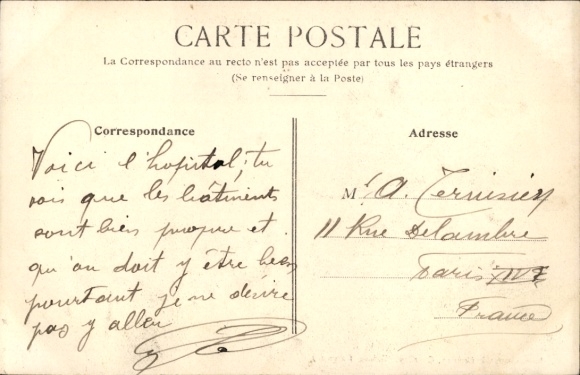 CARTE POSTALE
La Correspondance au recto n'est pas acceptée par tous les pays étrangers
(Se renseigner à la Poste)
Correspondance
Voici l'hopital; tu
vois que les bâtiments
sont bien propre et
qu'on doit y être bien
pourtant je ne désire
pas y aller
Adresse
Mr A. Ternisien
11 Rue Delambre
Paris XIVE
France